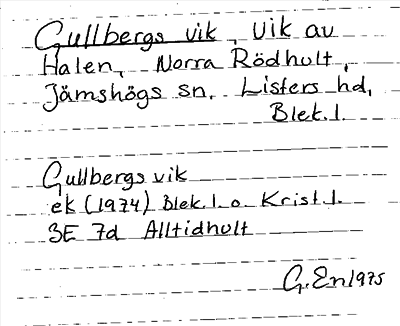 Gullbergs vik, vik av
Halen, Norra Rödhult,
Jämshögs sn, Listers hd,
Blek. l.
Gullbergs vik
ek (1974) Blek. l. o. Krist. l.
3E 7d Alltidhult
G. En 1975